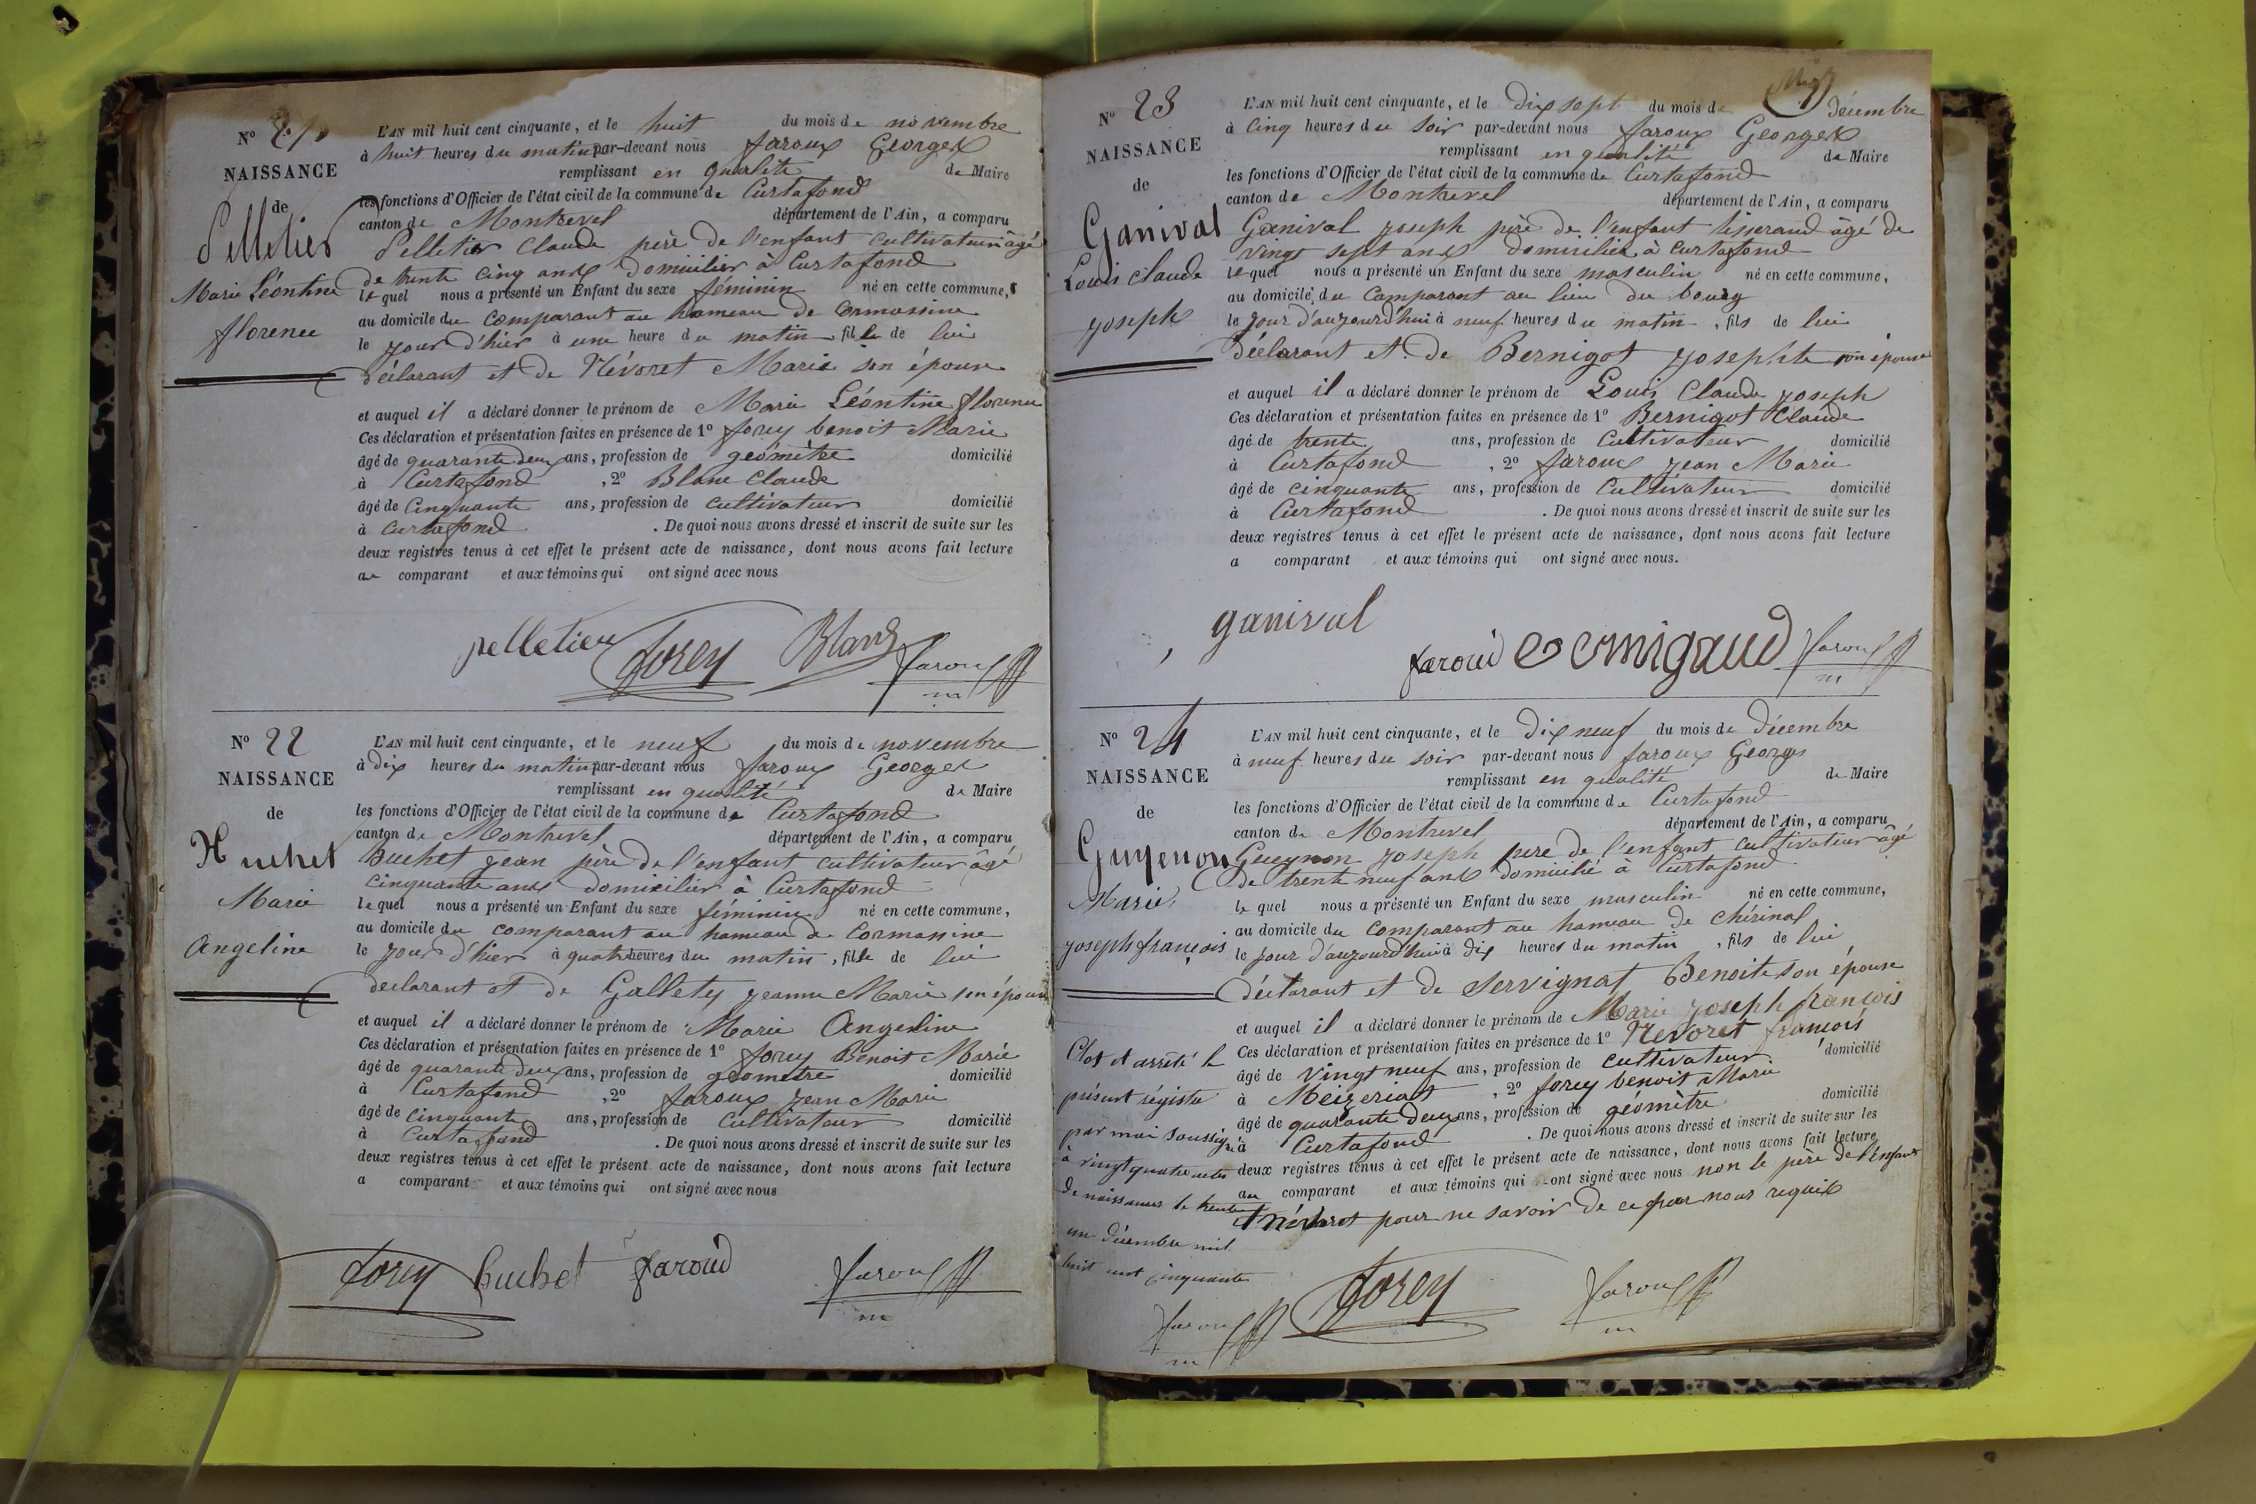 N° 21
NAISSANCE
de
Pelletier
Marie Léontine
florence
L'AN mil huit cent cinquante, et le huit du mois de novembre
à huit heures du matin par-devant nous faroux Georges
remplissant en qualité de Maire
les fonctions d'Officier de l'état civil de la commune de Curtafond
canton de Montrevel département de l'Ain, a comparu
Pelletier Claude père de l'enfant cultivateur âgé
de trente cinq ans domicilier à Curtafond
le quel nous a présenté un Enfant du sexe féminin né en cette commune,
au domicile du comparant au hameau de Cormassine
le jour d'hier à une heure du matin fille de lui
déclarant et de Névoret Marie son épouse
et auquel il a déclaré donner le prénom de Marie Léontine florence
Ces déclaration et présentation faites en présence de 1° forey benoit Marie
âgé de quarante deux ans, profession de géomètre domicilié
à Curtafond , 2° Blanc Claude
âgé de Cinquante ans, profession de cultivateur domicilié
à Curtafond . De quoi nous avons dressé et inscrit de suite sur les
deux registres tenus à cet effet le présent acte de naissance, dont nous avons fait lecture
au comparant et aux témoins qui ont signé avec nous
pelletier forey Blanc faroux
m
N° 22
NAISSANCE
de
Huchet
Marie
Angeline
L'AN mil huit cent cinquante, et le neuf du mois de novembre
à dix heures du matin par-devant nous faroux Georges
remplissant en qualité de Maire
les fonctions d'Officier de l'état civil de la commune de Curtafond
canton de Montrevel département de l'Ain, a comparu
Buchet jean père de l'enfant cultivateur agé
cinquante ans domicilier à Curtafond
le quel nous a présenté un Enfant du sexe féminin né en cette commune,
au domicile du comparant au hameau de Cormassine
le jour d'hier à quatre heures du matin , fille de lui
declarant et de Gallety jeanne Marie son épouse
et auquel il a déclaré donner le prénom de Marie Angeline
Ces déclaration et présentation faites en présence de 1° forey Benoit Marie
âgé de quarante deux ans, profession de géometre domicilié
à Curtafond , 2° faroux jean Marie
âgé de cinquante ans, profession de cultivateur domicilié
à Curtafond . De quoi nous avons dressé et inscrit de suite sur les
deux registres tenus à cet effet le présent acte de naissance, dont nous avons fait lecture
a comparant et aux témoins qui ont signé avec nous
forey buchet faroud faroux
m
N° 23
NAISSANCE
de
Ganival
Louis Claude
joseph
L'AN mil huit cent cinquante, et le dix sept du mois de Décembre
à cinq heures du soir par-devant nous faroux Georges
remplissant en qualité de Maire
les fonctions d'Officier de l'état civil de la commune de Curtafond
canton de Montrevel département de l'Ain, a comparu
Ganival joseph père de l'enfant tisserand âgé de
vingt sept ans domicilier à Curtafond
le quel nous a présenté un Enfant du sexe masculin né en cette commune,
au domicile du comparant au lieu du bourg
le jour d'aujourd'hui à neuf heures du matin , fils de lui
déclarant et de Bernigot josephte son épouse
et auquel il a déclaré donner le prénom de Louis Claude joseph
Ces déclaration et présentation faites en présence de 1° Bernigot Claude
âgé de trente ans, profession de Cultivateur domicilié
à Curtafond , 2° faroux jean Marie
âgé de cinquante ans, profession de Cultivateur domicilié
à Curtafond . De quoi nous avons dressé et inscrit de suite sur les
deux registres tenus à cet effet le présent acte de naissance, dont nous avons fait lecture
a comparant et aux témoins qui ont signé avec nous.
ganival
faroud faroux
m
N° 24
NAISSANCE
de
Guyenon
Marie
joseph françois
L'AN mil huit cent cinquante, et le Dix neuf du mois de Décembre
à neuf heures du soir par-devant nous faroux Georges
remplissant en qualité de Maire
les fonctions d'Officier de l'état civil de la commune de Curtafond
canton de Montrevel département de l'Ain, a comparu
Gueynon joseph père de l'enfant cultivateur âgé
de trente neuf ans domicilié à Curtafond
le quel nous a présenté un Enfant du sexe masculin né en cette commune,
au domicile du comparant au hameau de chérinal
le jour d'aujourd'hui à dix heures du matin , fils de lui
déclarant et de Servignat Benoite son épouse
et auquel il a déclaré donner le prénom de Marie joseph françois
Ces déclaration et présentation faites en présence de 1° Nevoret françois
âgé de vingt neuf ans, profession de cultivateur domicilié
à Meizeriat , 2° forey benoit Marie
âgé de quarante deux ans, profession de géomètre domicilié
à Curtafond . De quoi nous avons dressé et inscrit de suite sur les
deux registres tenus à cet effet le présent acte de naissance, dont nous avons fait lecture
au comparant et aux témoins qui ont signé avec nous non le père de l'enfant
et Névoret pour ne savoir de ce par nous requis
Clos et arrêté le
présent régistre
par moi soussigné
à vingt quatre actes
de naissances le trente
un décembre mil
huit cent cinquante
faroux forey faroux
m m